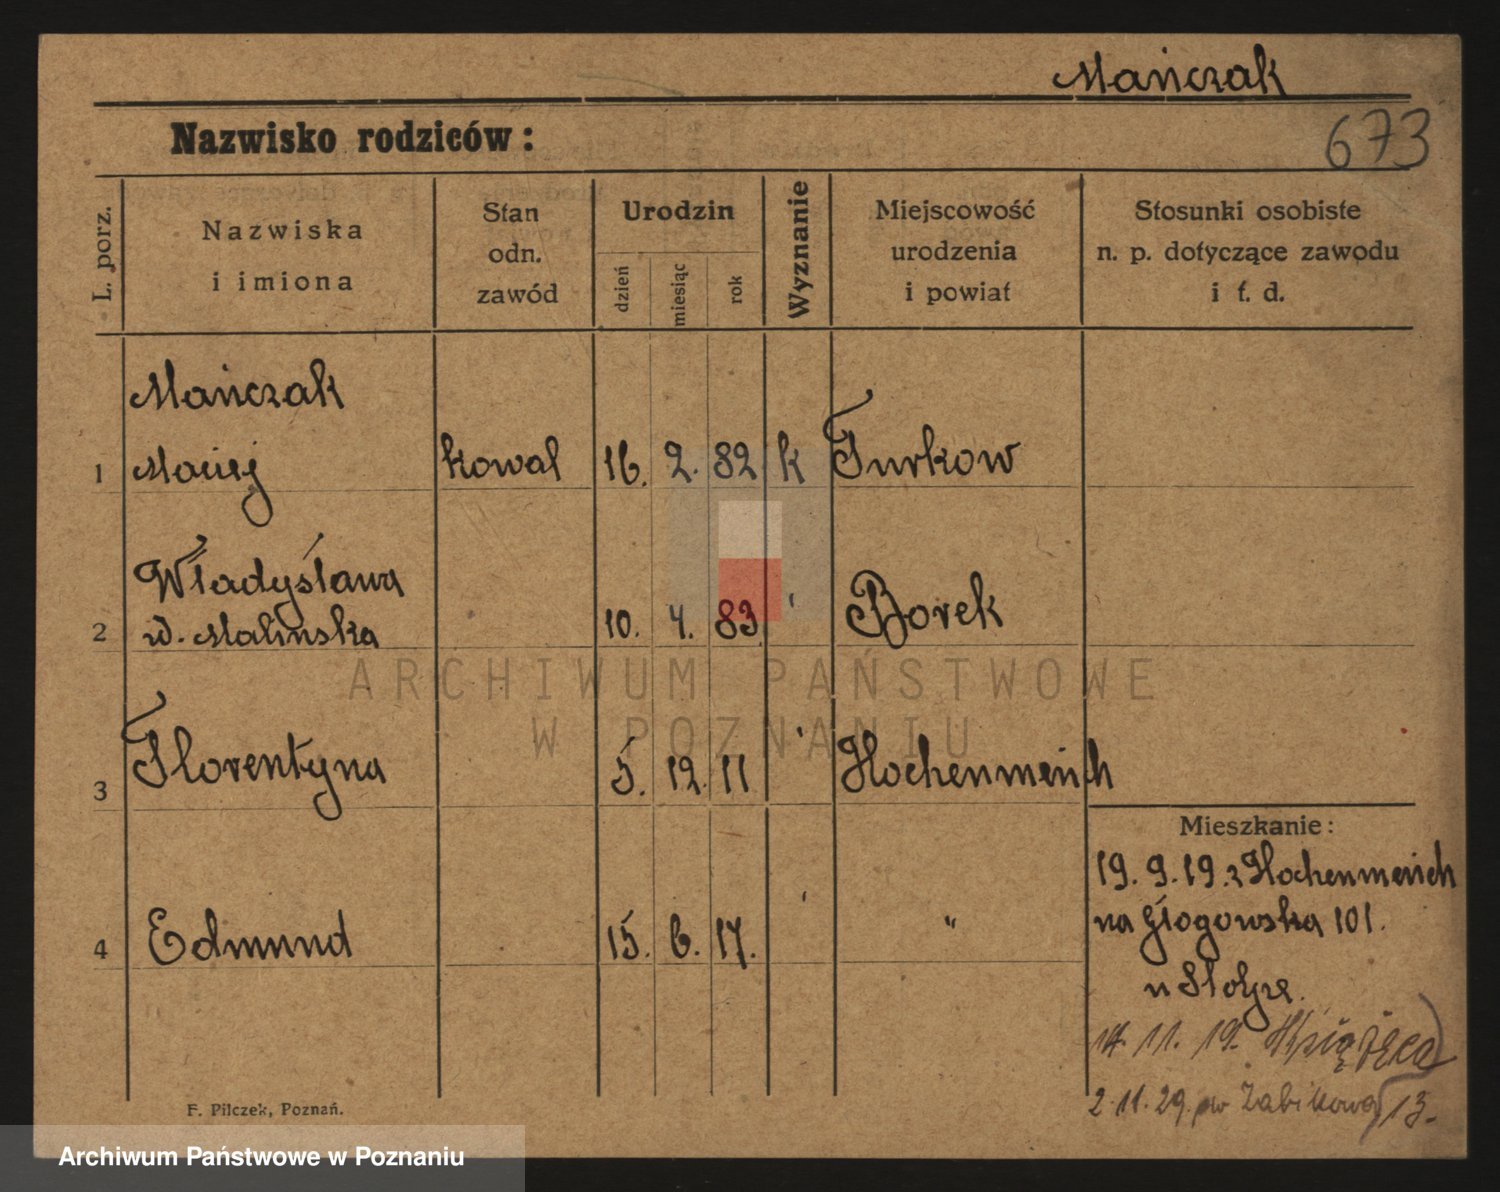 Mańczak
Nazwisko rodziców:
673
L. porz.
Nazwiska
i imiona
Stan
odn.
zawód
Urodzin
dzień
miesiąc
rok
Wyznanie
Miejscowość
urodzenia
i powiat
Stosunki osobiste
n. p. dotyczące zawodu
i t. d.
Mańczak
1 Maciej kowal 16. 2. 82 k Turkow
Władysława
2 ud. Malinska 10. 4. 83. ' Borek
ARCHIWUM PAŃSTWOWE
W POZNANIU
3 Florentyna 5. 12. 11 ' Hochenmeich
4 Edmund 15. 6. 17. ' "
Mieszkanie:
19. 9. 19. z Hochenmeich
na Głogowska 101.
u
14. 11. 19. Książęca
2.11.29. pw Żabikowa 13.
F. Pilczek, Poznań.
Archiwum Państwowe w Poznaniu